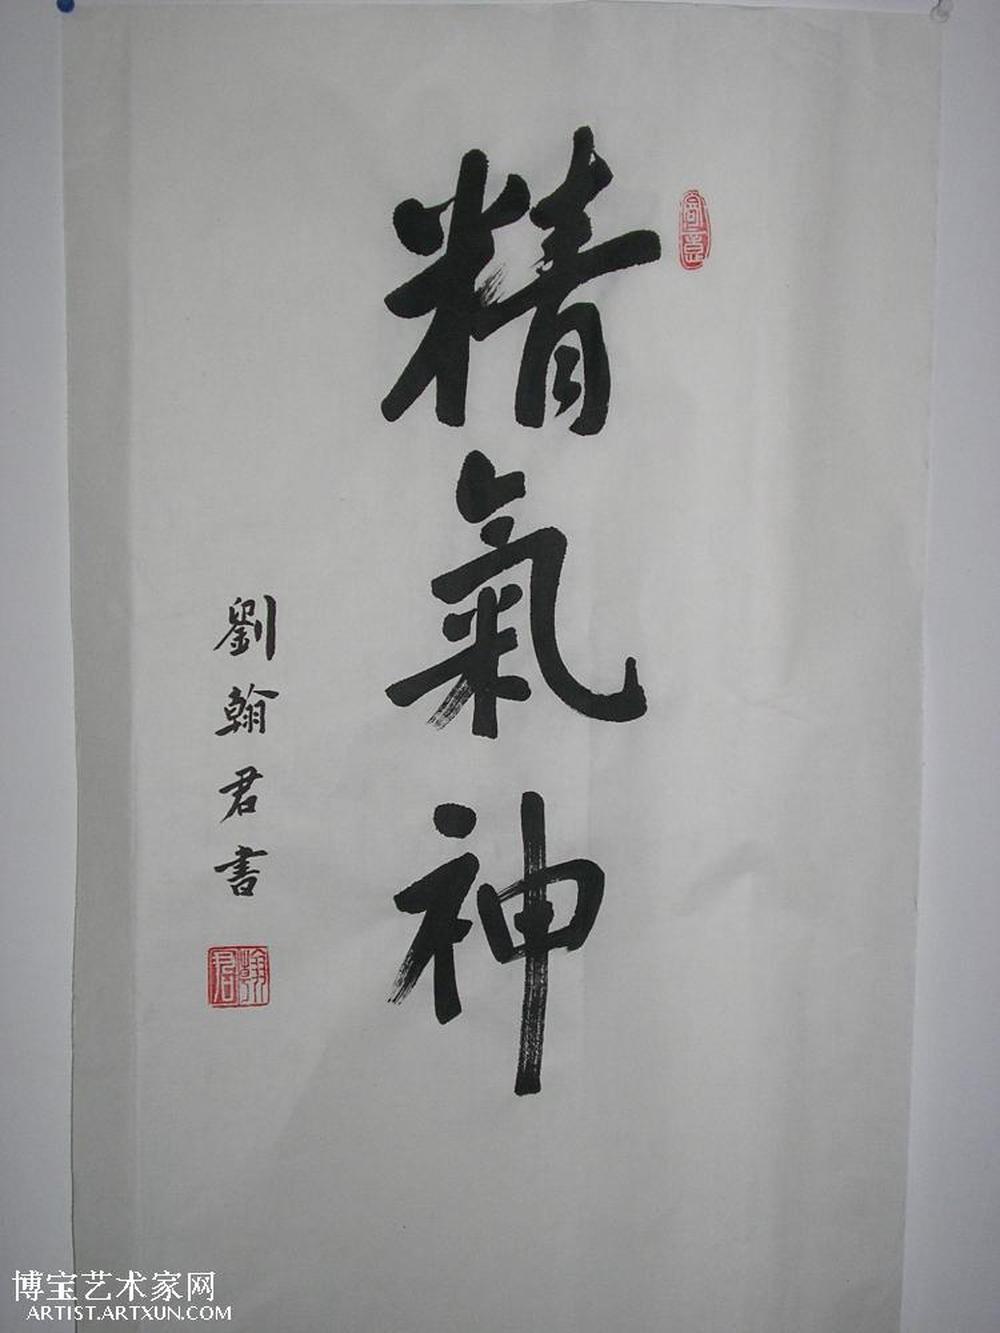 精氣神
劉翰君書
翰君
寓意
博宝艺术家网
ARTIST.ARTXUN.COM